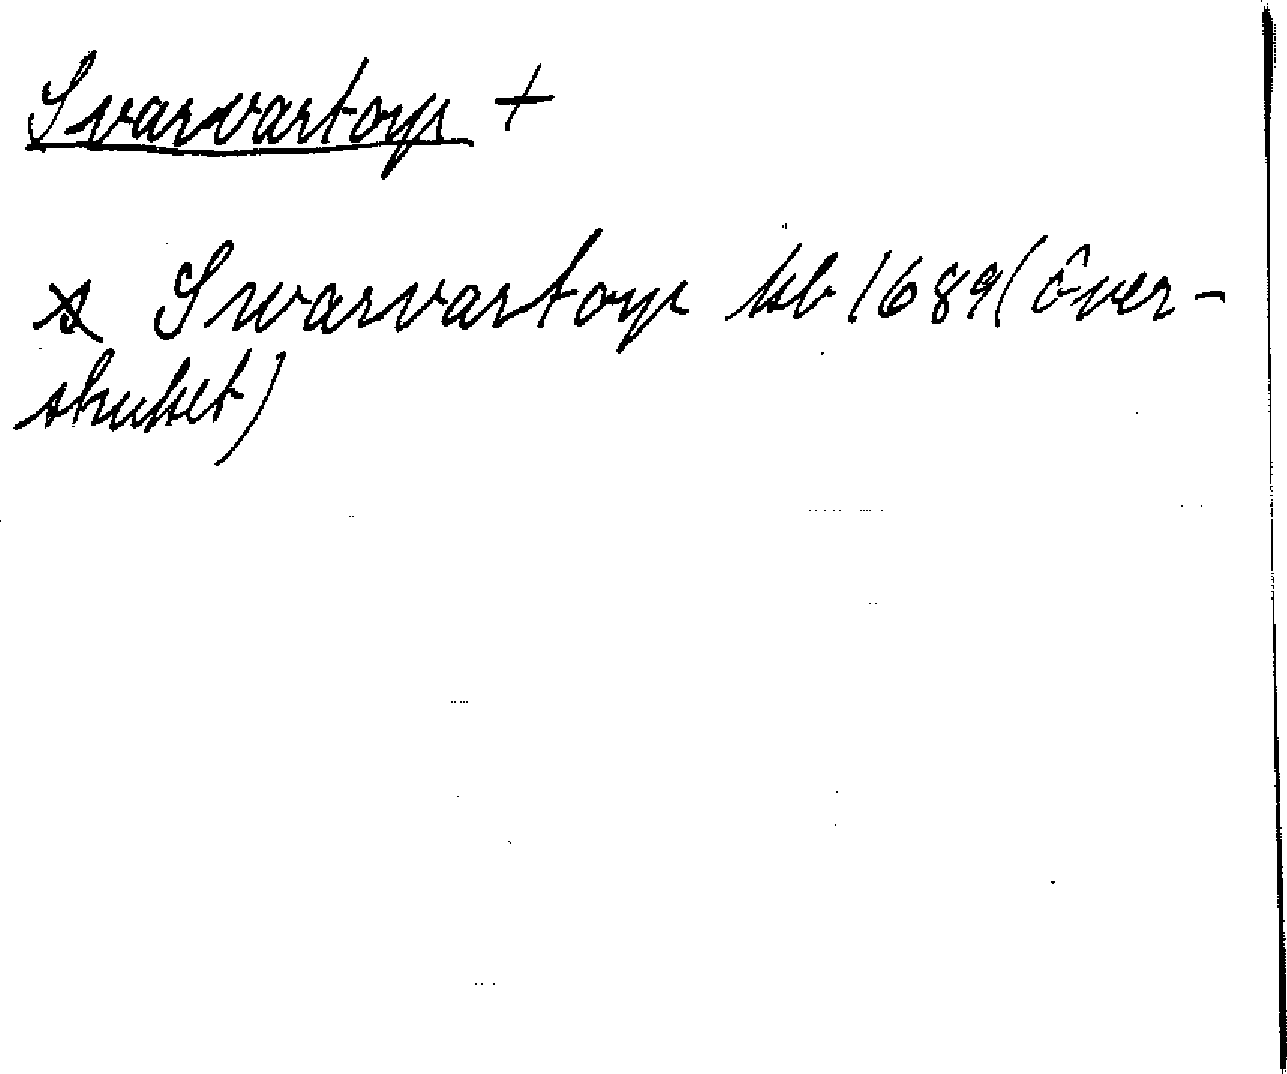 Svarvartorp +
Swarvartorp kb 1689 (över-
struket)